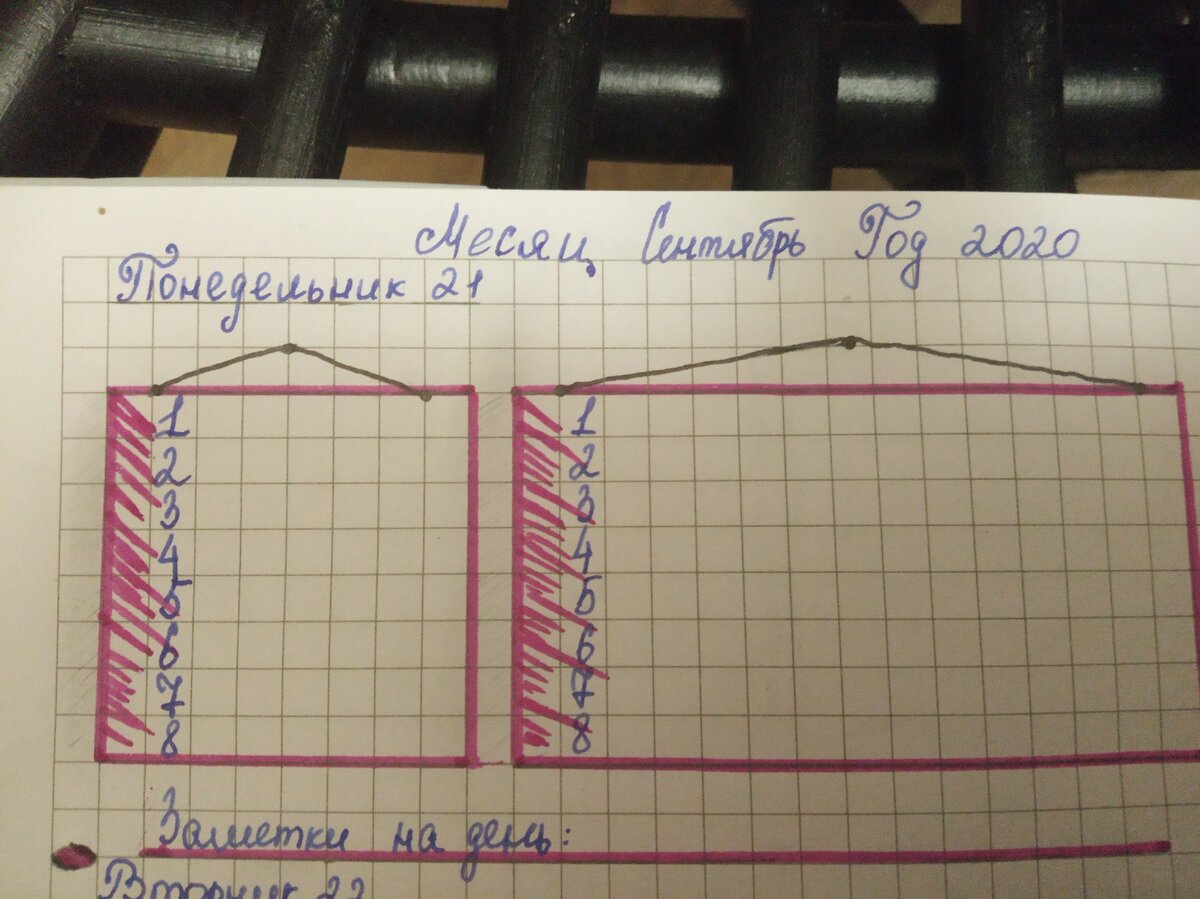 Месяц Сентябрь Год 2020
Понедельник 21
1
2
3
4
5
6
7
8
1
2
3
4
5
6
7
8
Заметки на день:
Вторник 22